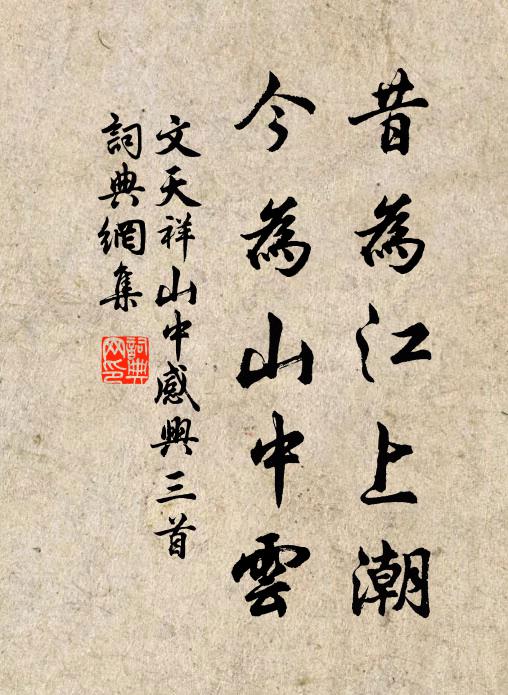 昔為江上潮
今為山中雲
文天祥山中感興三首
詞典網集
詞典网印